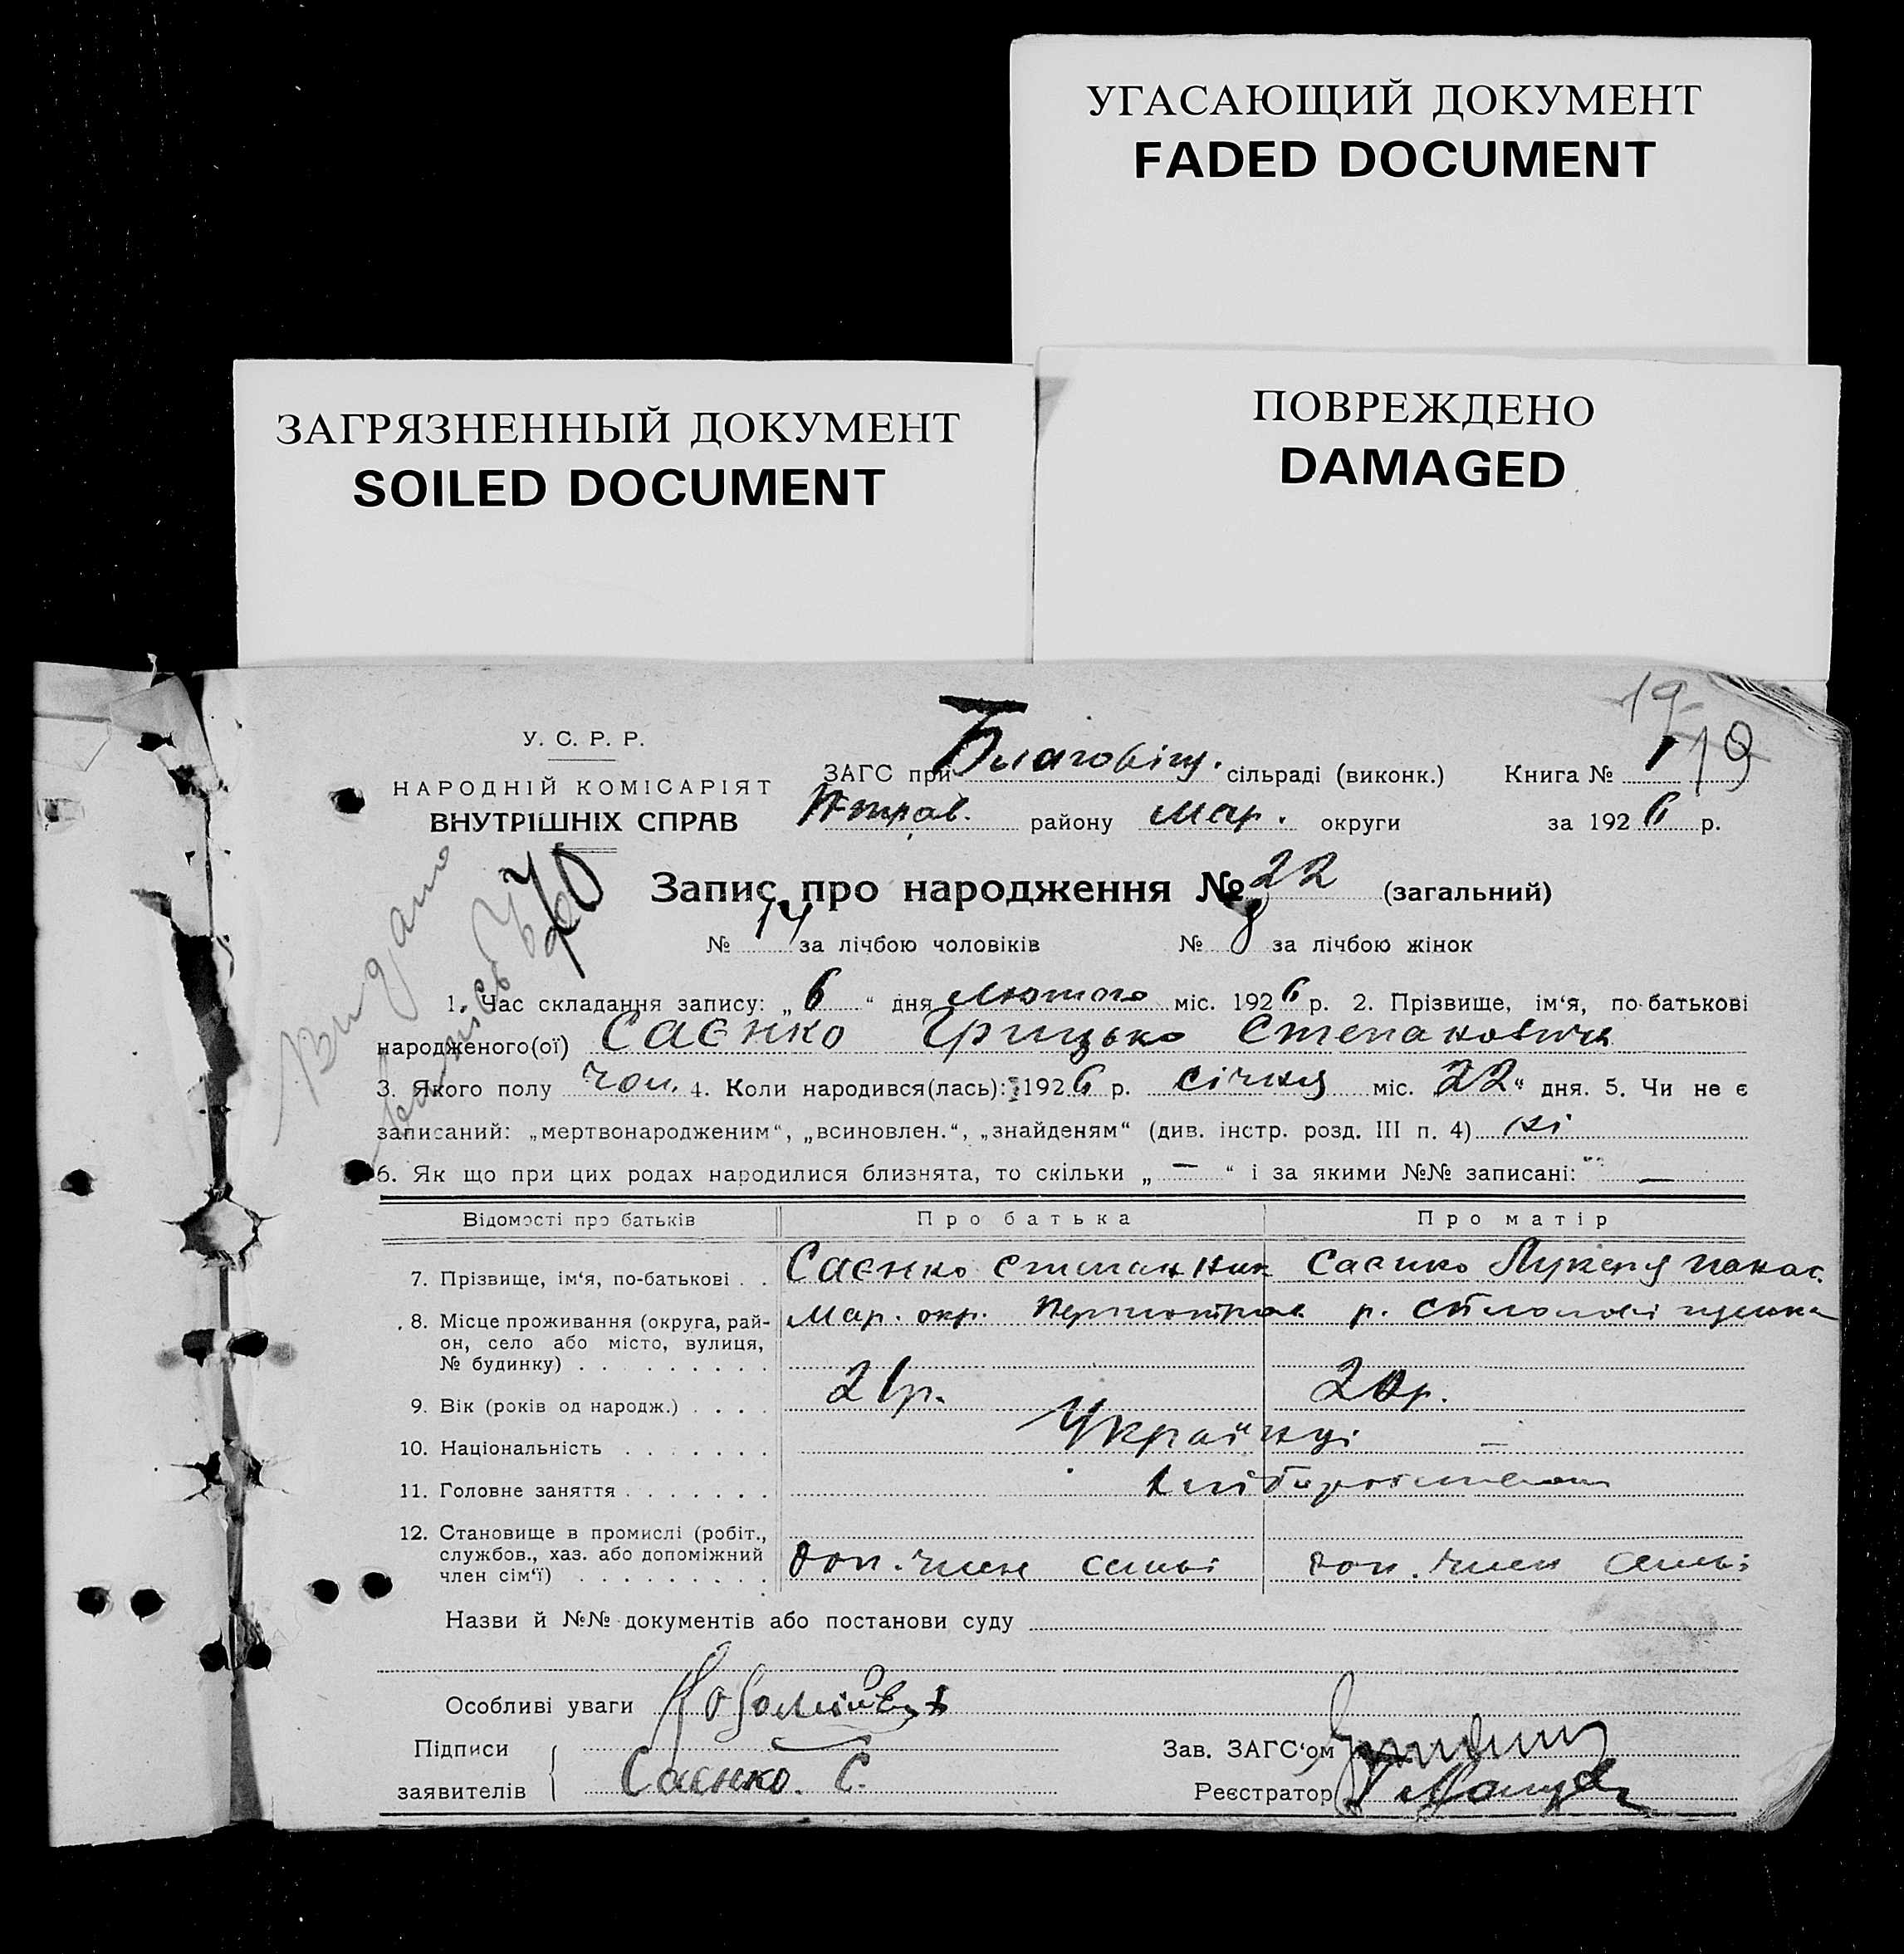 УГАСАЮЩИЙ ДОКУМЕНТ
FADED DOCUMENT
ЗАГРЯЗНЕННЫЙ ДОКУМЕНТ
SOILED DOCUMENT
ПОВРЕЖДЕНО
DAMAGED
19
У. С. Р. Р.
НАРОДНІЙ КОМІСАРІЯТ
ВНУТРІШНІХ СПРАВ
ЗАГС при Благовіщ. сільраді (виконк.) Книга № 1 19
району Мар. округи за 1926 р.
Запис про народження № 22 (загальний)
№ 14 за лічбою чоловіків № 8 за лічбою жінок
Видано
1. Час складання запису: „6“ дня Лютого міс. 1926 р. 2. Прізвище, ім‘я, по-батькові
народженого(ої) Саєнко Грицько Степанович
3. Якого полу чол. 4. Коли народився(лась): 1926 р. січня міс. „22“ дня. 5. Чи не є
записаний: „мертвонародженим“, „всиновлен.“, „знайденям“ (див. інстр. розд. III п. 4) ні
6. Як що при цих родах народилися близнята, то скільки „—“ і за якими №№ записані: —
Відомості про батьків Про батька Про матір
7. Прізвище, ім‘я, по-батькові . . Саєнко Степан Ник Саєнко Лукеря Панас.
8. Місце проживання (округа, рай-
он, село або місто, вулиця,
№ будинку) . . . . . . . . . Мар. окр. р.
9. Вік (років од народж.) . . . . 21р. 20р.
10. Національність . . . . . . . Українці —
11. Головне заняття . . . . . . . Хліборобство
12. Становище в промислі (робіт.,
службов., хаз. або допоміжний
член сім‘ї) . . . . . . . . . доп. член сімьі доп. член сімьі
Назви й №№ документів або постанови суду
Особливі уваги
Підписи
заявителів Саєнко. С.
Зав. ЗАГС‘ом
Реєстратор